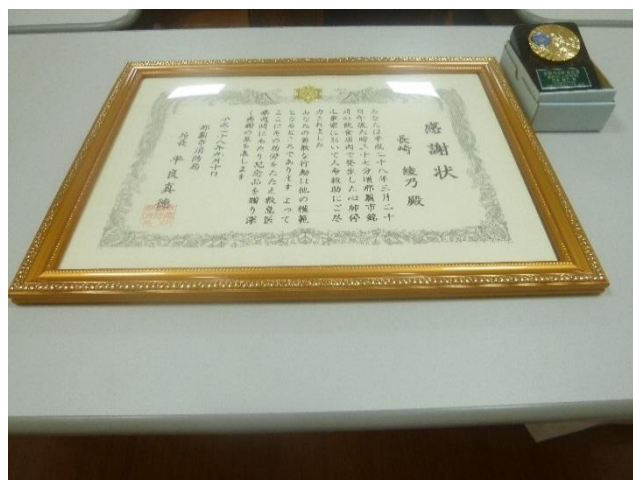 感謝状
長崎 綾乃 殿
あなたは平成二十八年三月二十
日午後九時三十七分頃那覇市銘
内の飲食店内で発生した心肺停
止事案において人命救助にご尽
力されました
あなたの勇敢な行動は他の模範
となるところであります よって
ここにその功労をたたえ救急医
療週間にあたり記念品を贈り深
く感謝の意を表します
平成二十八年九月十日
那覇市消防局
局長 平良真徳